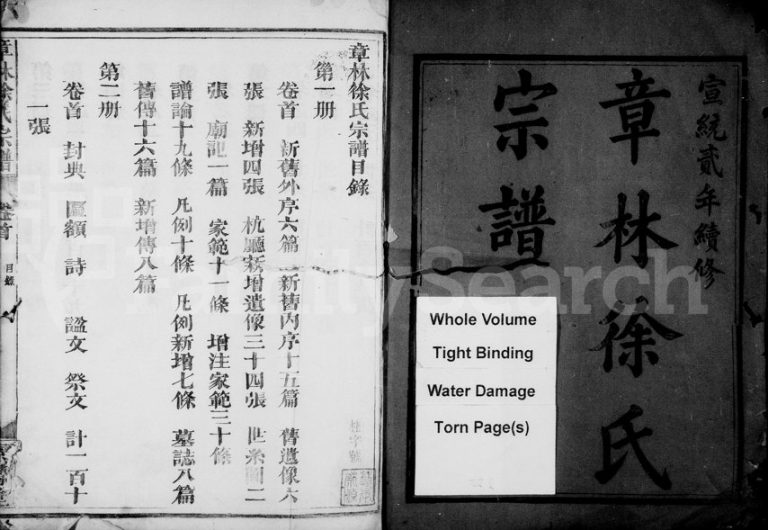 宣統貳年續修
章林徐氏
宗譜
Whole Volume
Tight Binding
Water Damage
Torn Page(s)
章林徐氏宗譜目錄
第一册
卷首 新舊外序六篇 新舊內序十五篇 舊遺像六
張 新增四張 杭廳新增遺像三十四張 世系圖二
張 廟記一篇 家範十一條 增注家範三十條
譜論十九條 凡例十條 凡例新增七條 墓誌八篇
舊傳十六篇 新增傳八篇
第二册
卷首 封典 匾額 詩 諡文 祭文 計一百十
一張
章林徐氏宗譜
卷首
目錄
FamilySearch